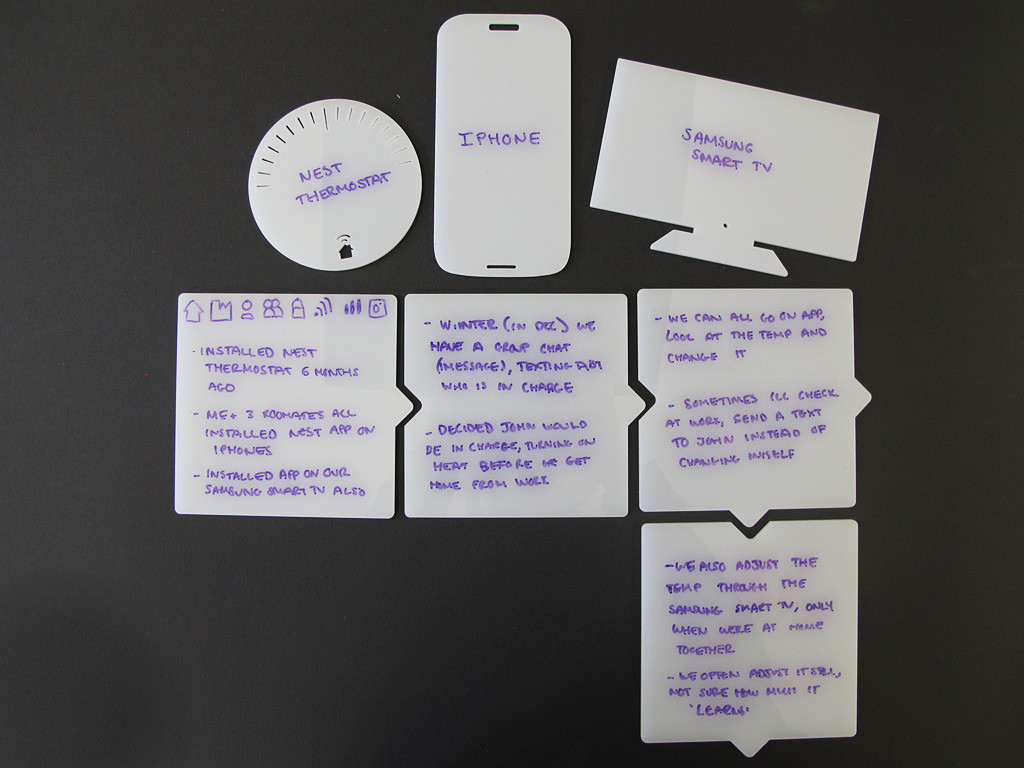 NEST
THERMOSTAT
IPHONE
SAMSUNG
SMART TV
- INSTALLED NEST
THERMOSTAT 6 MONTHS
AGO
- ME + 3 ROOMATES ALL
INSTALLED NEST APP ON
IPHONES
- INSTALLED APP ON OUR
SAMSUNG SMART TV ALSO
- WINTER (IN DEC) WE
HAVE A GROUP CHAT
(IMESSAGE), TEXTING ABT
WHO IS IN CHARGE
- DECIDED JOHN WOULD
BE IN CHARGE, TURNING ON
HEAT BEFORE WE GET
HOME FROM WORK
- WE CAN ALL GO ON APP,
LOOK AT THE TEMP AND
CHANGE IT
- SOMETIMES I'LL CHECK
AT WORK, SEND A TEXT
TO JOHN INSTEAD OF
CHANGING MYSELF
- WE ALSO ADJUST THE
TEMP THROUGH THE
SAMSUNG SMART TV, ONLY
WHEN WE'RE AT HOME
TOGETHER
- WE OFTEN ADJUST IT STILL,
NOT SURE HOW MUCH IT
'LEARNS'